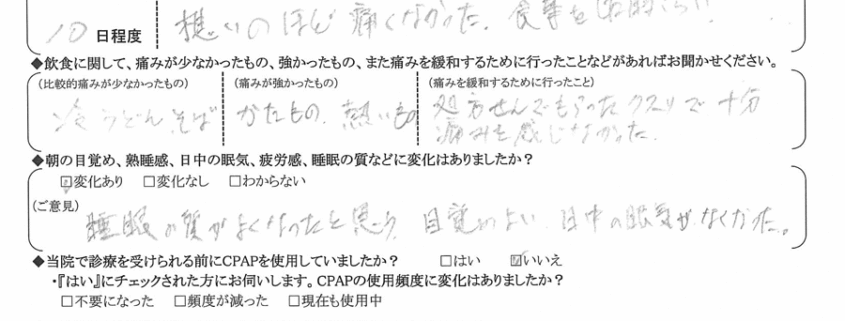 10 日程度 想いのほど 痛くなかった. 食事を
◆飲食に関して、痛みが少なかったもの、強かったもの、また痛みを緩和するために行ったことなどがあればお聞かせください。
(比較的痛みが少なかったもの) (痛みが強かったもの) (痛みを緩和するために行ったこと)
冷 うどん そば かたもの. 熱いもの 処方せんでもらったクスリで 十分
痛みを感じなかった.
◆朝の目覚め、熟睡感、日中の眠気、疲労感、睡眠の質などに変化はありましたか?
☑変化あり □変化なし □わからない
(ご意見)
睡眠の質がよくなったと思う. 目覚めよい. 日中の眠気がなくなった。
◆当院で診療を受けられる前にCPAPを使用していましたか? □はい ☑いいえ
・『はい』にチェックされた方にお伺いします。CPAPの使用頻度に変化はありましたか?
□不要になった □頻度が減った □現在も使用中